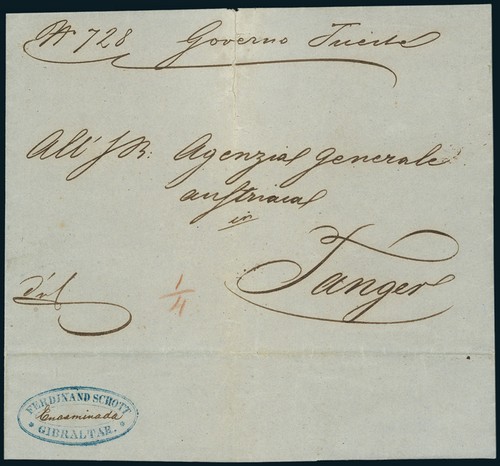 № 728 Governo Trieste
All' I.R: Agenzia generale
austriaca
in
Tanger
1/4
FERDINAND SCHOTT
Encaminada
GIBRALTAR.